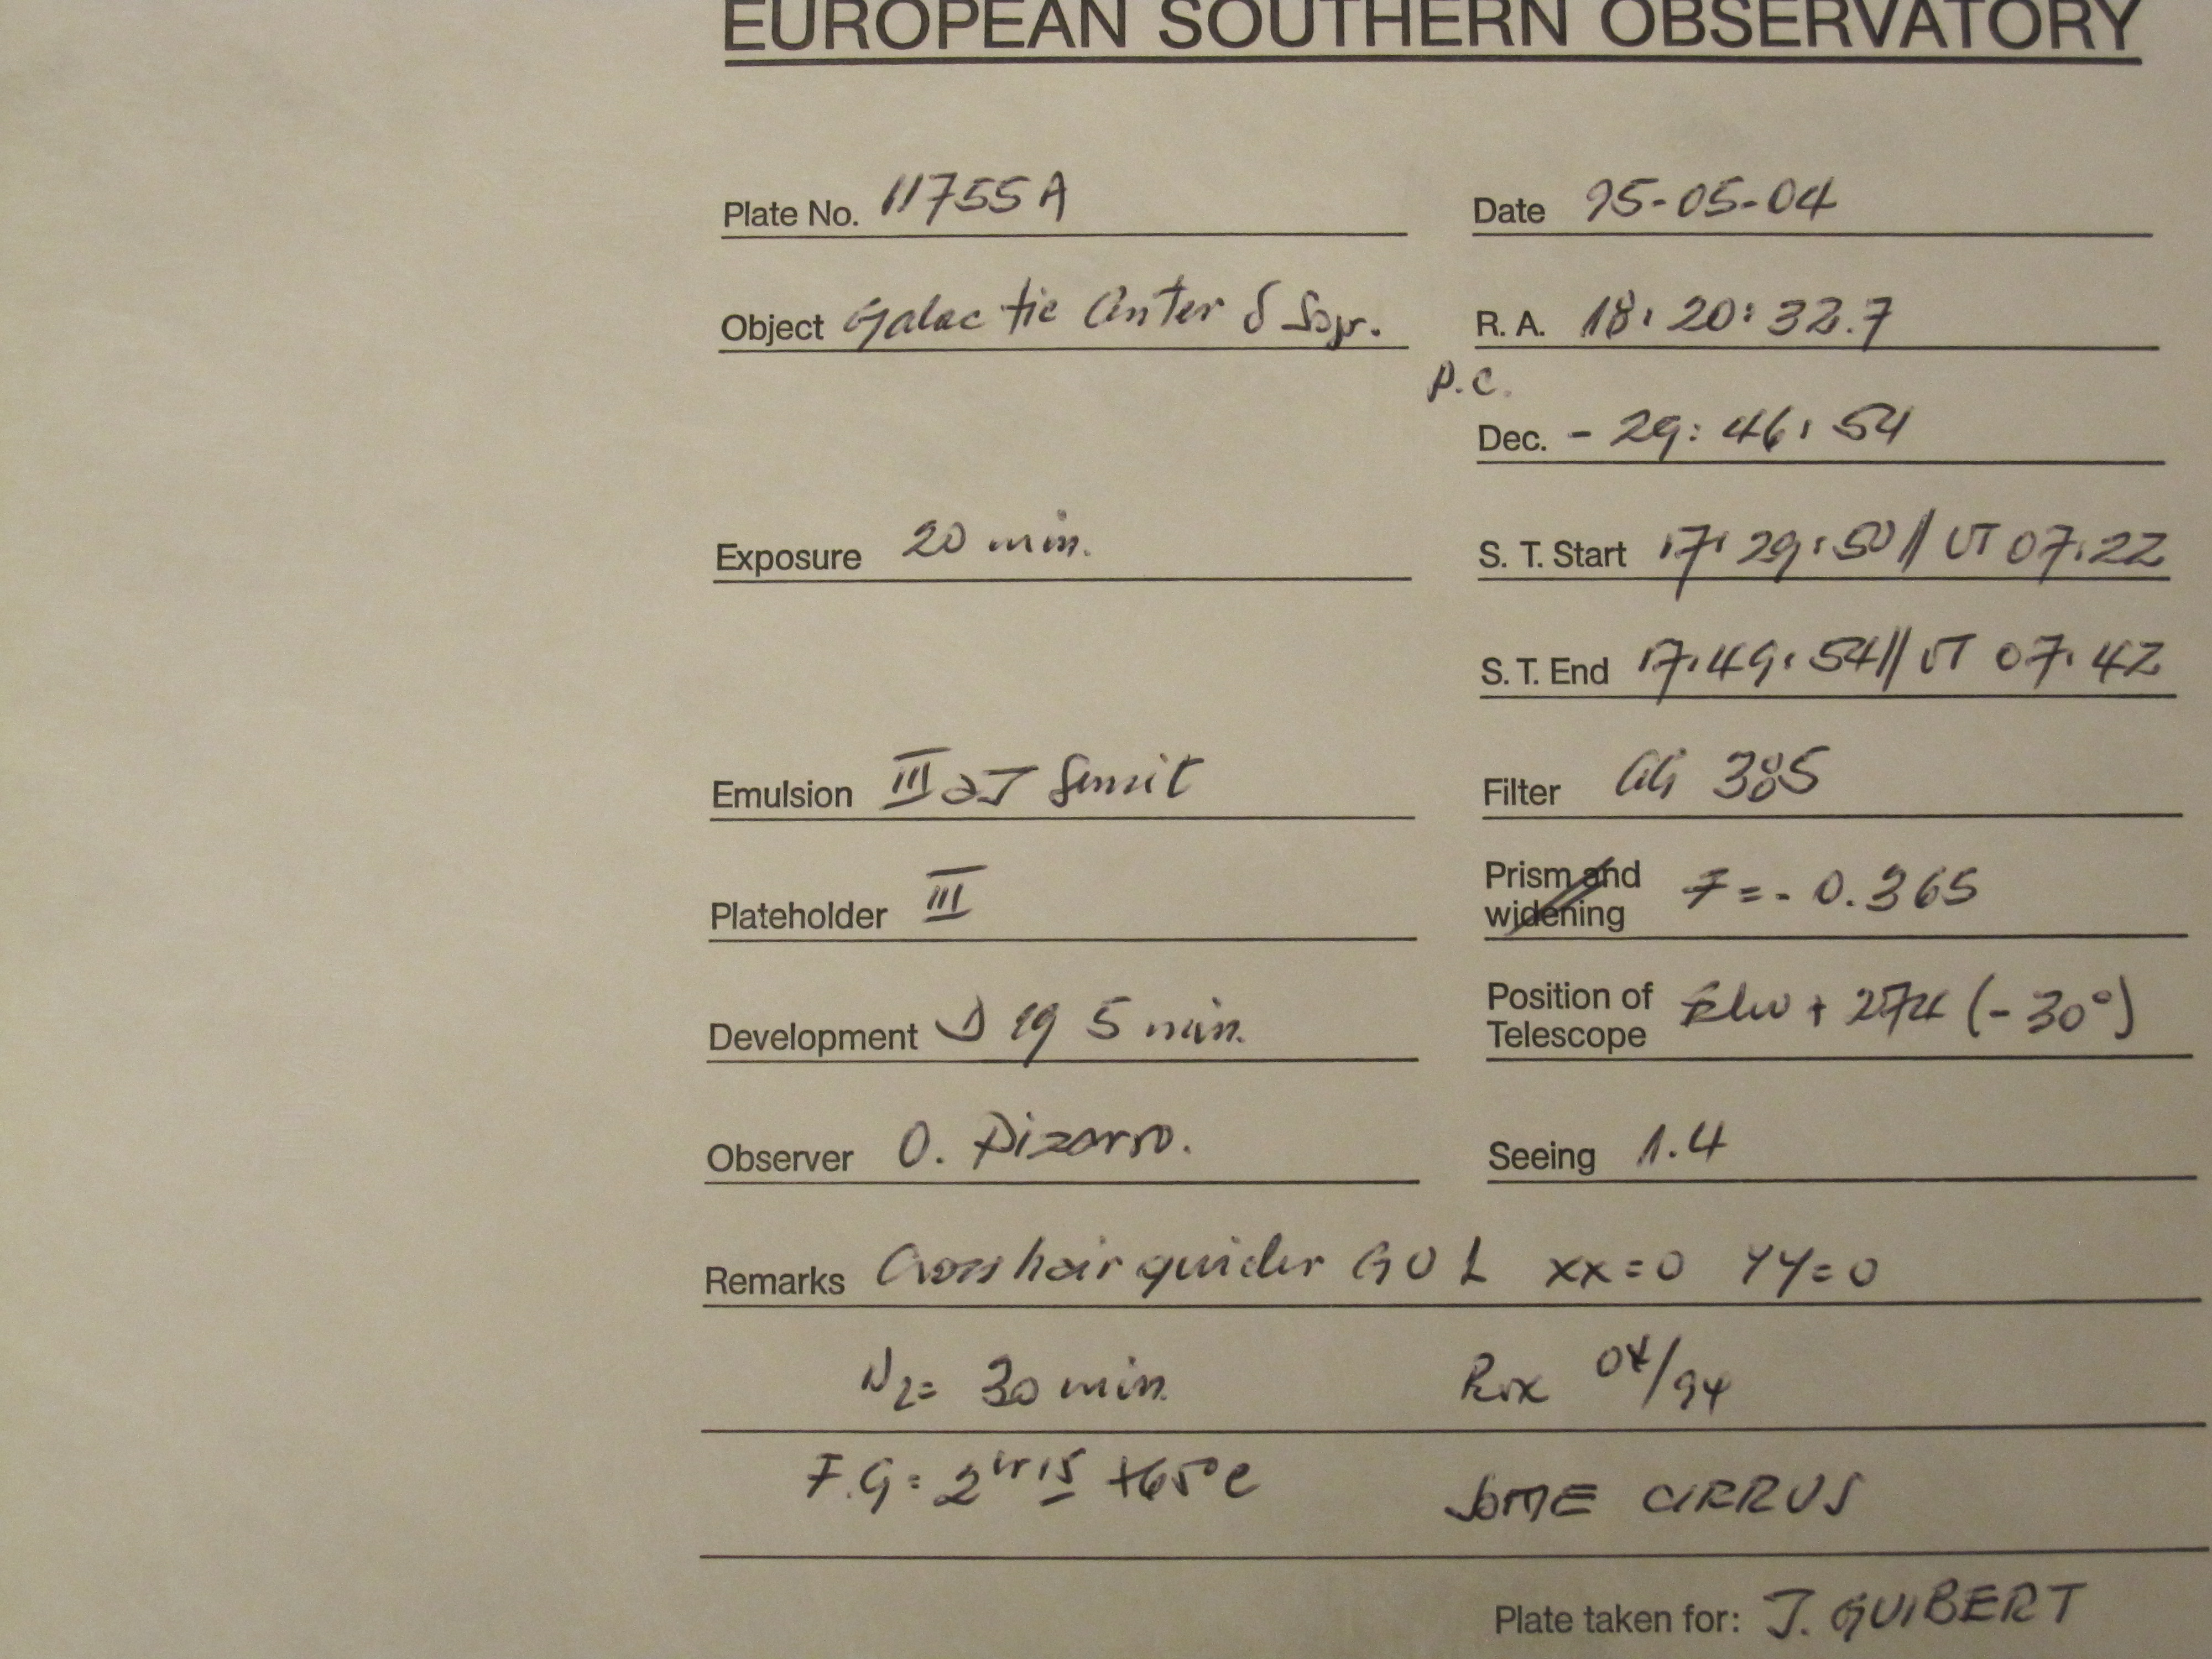 EUROPEAN SOUTHERN OBSERVATORY
Plate No. 11755A Date 95-05-04
Object Galactic Center δ Sgr. R. A. 18:20:32.7
P.C.
Dec. - 29:46:54
Exposure 20 min. S. T. Start 17:29:50 // UT 07:22
S. T. End 17:49:54 // UT 07:42
Emulsion III aJ Sensit Filter GG 385
Plateholder III Prism and widening F = - 0.365
Development D 19 5 min. Position of Telescope + 274 (-30°)
Observer O. Pizarro. Seeing 1.4
Remarks Crosshair guider GOL XX=0 YY=0
N2= 30 min. Rix 04/94
F.G= 2hr 15 +65°C SOME CIRRUS
Plate taken for: J. GUIBERT